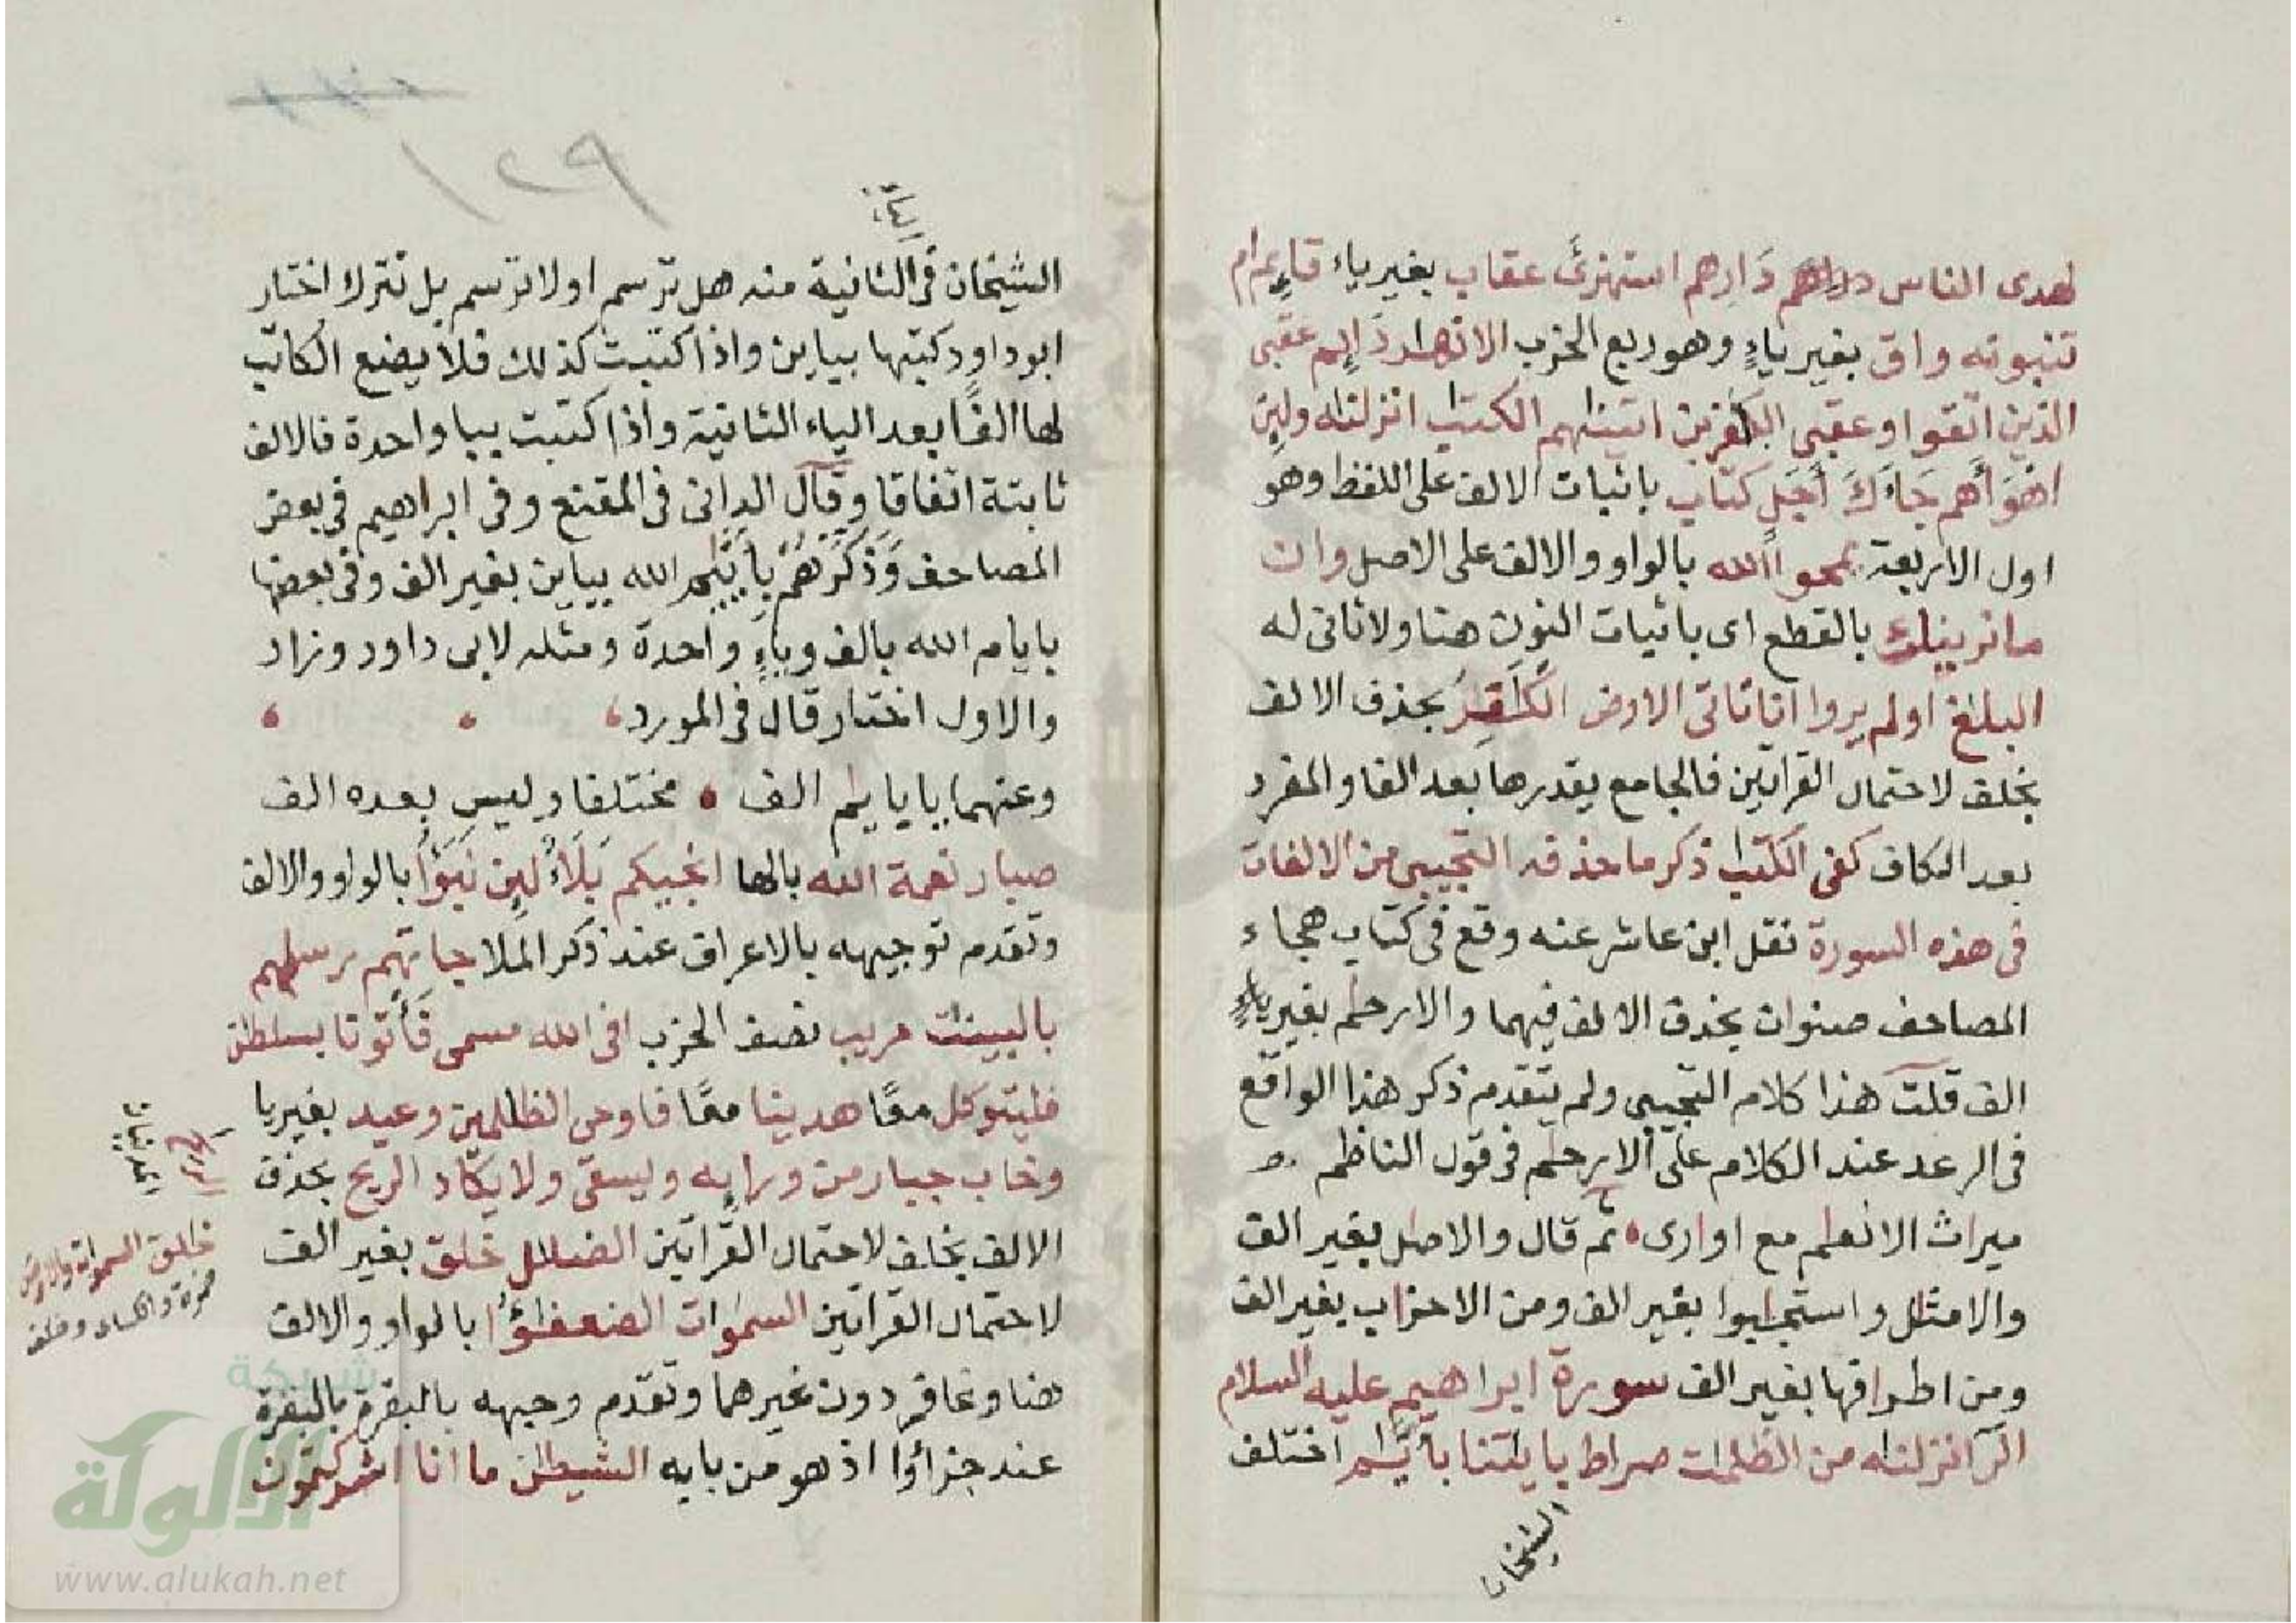 لهدى الناس دارهم دَارِهم استهزئَ عقاب بغير ياء قاىِم ام
تنبونه واق بغير ياءٍ وهو ربع الحزب الانهار دَايِم عقبى
الذين اتقوا وعقبى الكفرين اتينهم الكتب انزلنه ولين
اهوَاهم جَاءَكَ أجَلٍ كتاب باثبات الالف على اللفظ وهو
اول الاربعة يمحوا الله بالواو والالف على الاصل وان
ما نرينك بالقطع اى باثبات النون هنا ولا ثانى له
البلغ اولم يروا انا ناتى الارض الكفر بحذف الالف
بخلف لاحتمال القراتين فالجامع يقدرها بعد الفا والمفرد
بعد الكاف كفى الكتب ذكر ما حذفه التجيبى من الالفات
فى هذه السورة نقل ابن عاشر عنه وقع فى كتاب هجاء
المصاحف صنوان بحذف الالف فيهما والارحم بغير ياء
الف قلت هذا كلام التجيبى ولم يتقدم ذكر هذا الواقع
فى الرعد عند الكلام على الارحم فى قول الناظم
ميراث الانعم مع اوارى ثم قال والاصل بغير الف
والامثل واستجيبوا بغير الف ومن الاحزاب بغير الف
ومن اطرافها بغير الف سورة ابراهيم عليه السلام
الر انزلنه من الظلمات صراط بايتنا بأيم اختلف
الشيخان
١٢٩
الشيخان فى الثانية منه هل ترسم اولا ترسم بل تترك اختار
ابو داود كتبها بياين واذا كتبت كذلك فلا يضع الكاتب
لها الفًا بعد الياء الثانية واذا كتبت بيا واحدة فالالف
ثابتة اتفاقا وقال الدانى فى المقنع وفى ابراهيم فى بعض
المصاحف وَذَكِّرهُم بِأييم الله بياين بغير الف وفى بعضها
بايام الله بالف وياءٍ واحدة ومثله لابى داود وزاد
والاول اختار قال فى المورد
وعنهما بايايم الف مختلفا وليس بعده الف
صبار نعمة الله بالها انجيكم بَلَاءٌ لين نَبَؤُا بالواو والالف
وتقدم توجيهه بالاعراف عند ذكر الملا جاتهم رسلهم
بالبينت مريب نصف الحزب افى الله مسمى فَأتونا بسلطن
فليتوكل معًا هدينا معًا فاوحى الظلمين وعيد بغير يا
وخاب جبار من ورايه ويسقى ولا يكاد الريح بحذف
الالف بخلف لاحتمال القراتين الضلل خلق بغير الف
لاحتمال القراتين السموات الضعفؤا بالواو والالف
هنا وغافر دون غيرهما وتقدم وجهه بالبقرة بالبقرة
عند جزاؤا اذ هو من بابه الشيطن ما انا اشركتمون
خلق السموات والارض
حمزة والكساى وخلف
شبكة
الألوكة
www.alukah.net